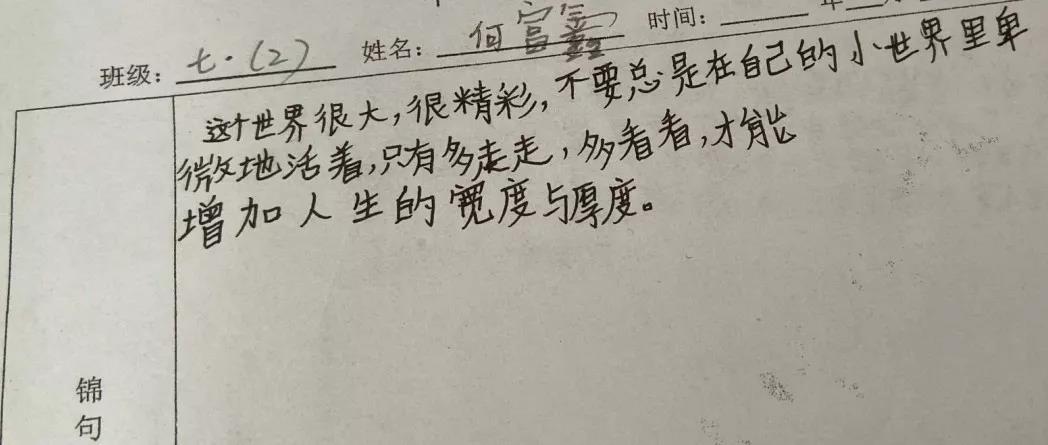 班级: 七·(2) 姓名: 何富鑫 时间: 年 月
这个世界很大,很精彩,不要总是在自己的小世界里卑
微地活着,只有多走走,多看看,才能
增加人生的宽度与厚度。
锦
句